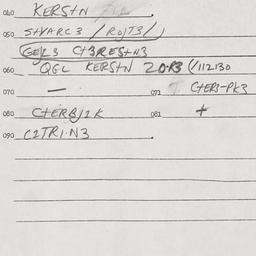 040 KERSTN
050 SHVARC3 / ROJT3/
GEL3 CT3REST-N3
060 QGL KERSTN 20-R3 (/112130
070 — 071 CTER3-PK3
080 CTERBJ2K 081 +
090 C2TRI-N3